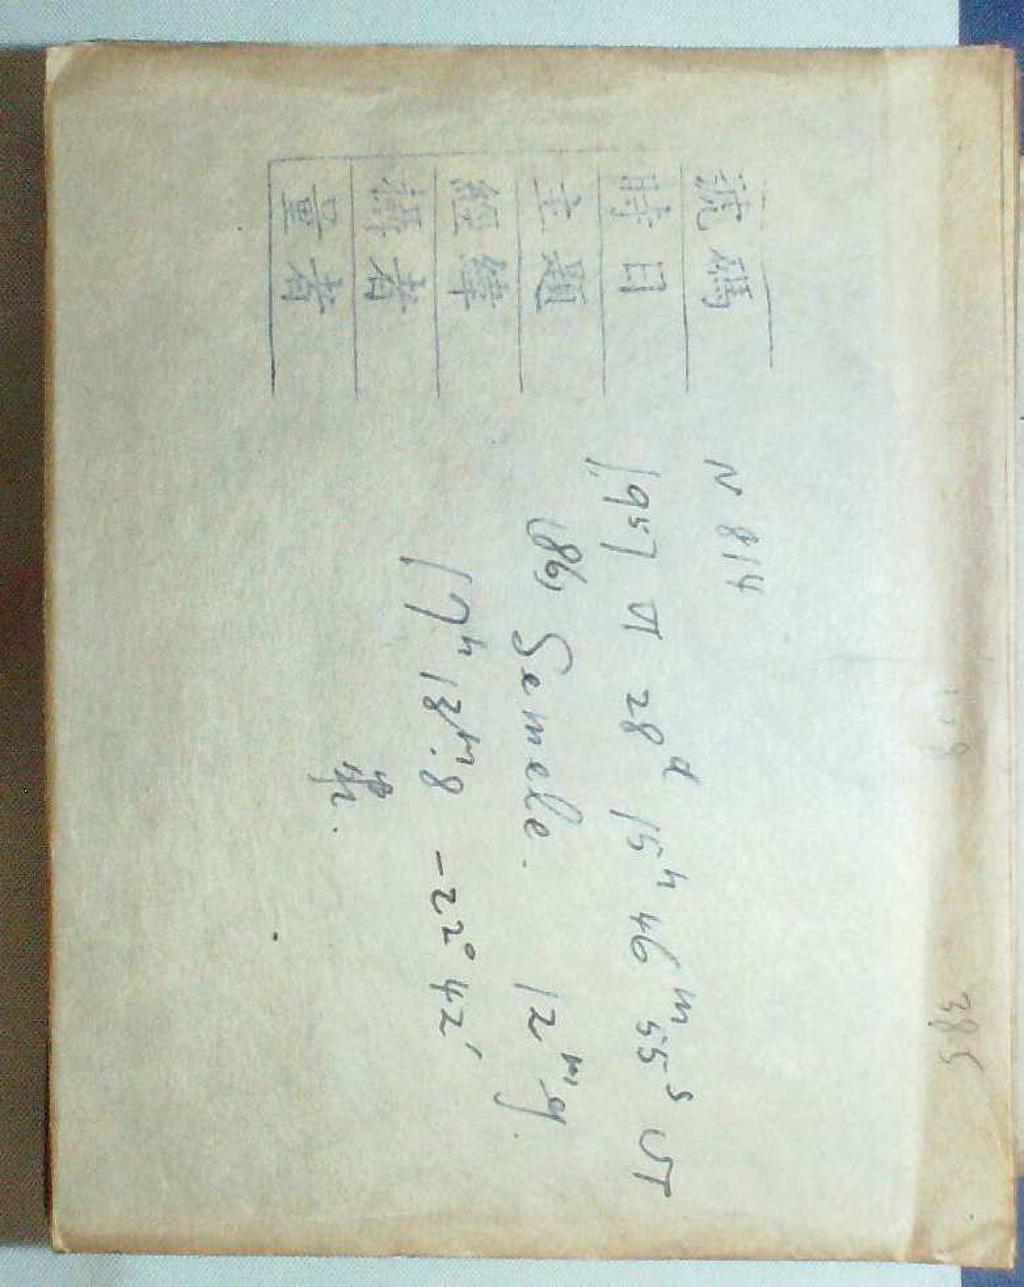 385
號碼 N 814
時日 1957 VI 28d 15h 46m 55s UT
主題 (86) Semele. 12mg
經緯 17h 13m.8 -22° 42'
攝者
量者